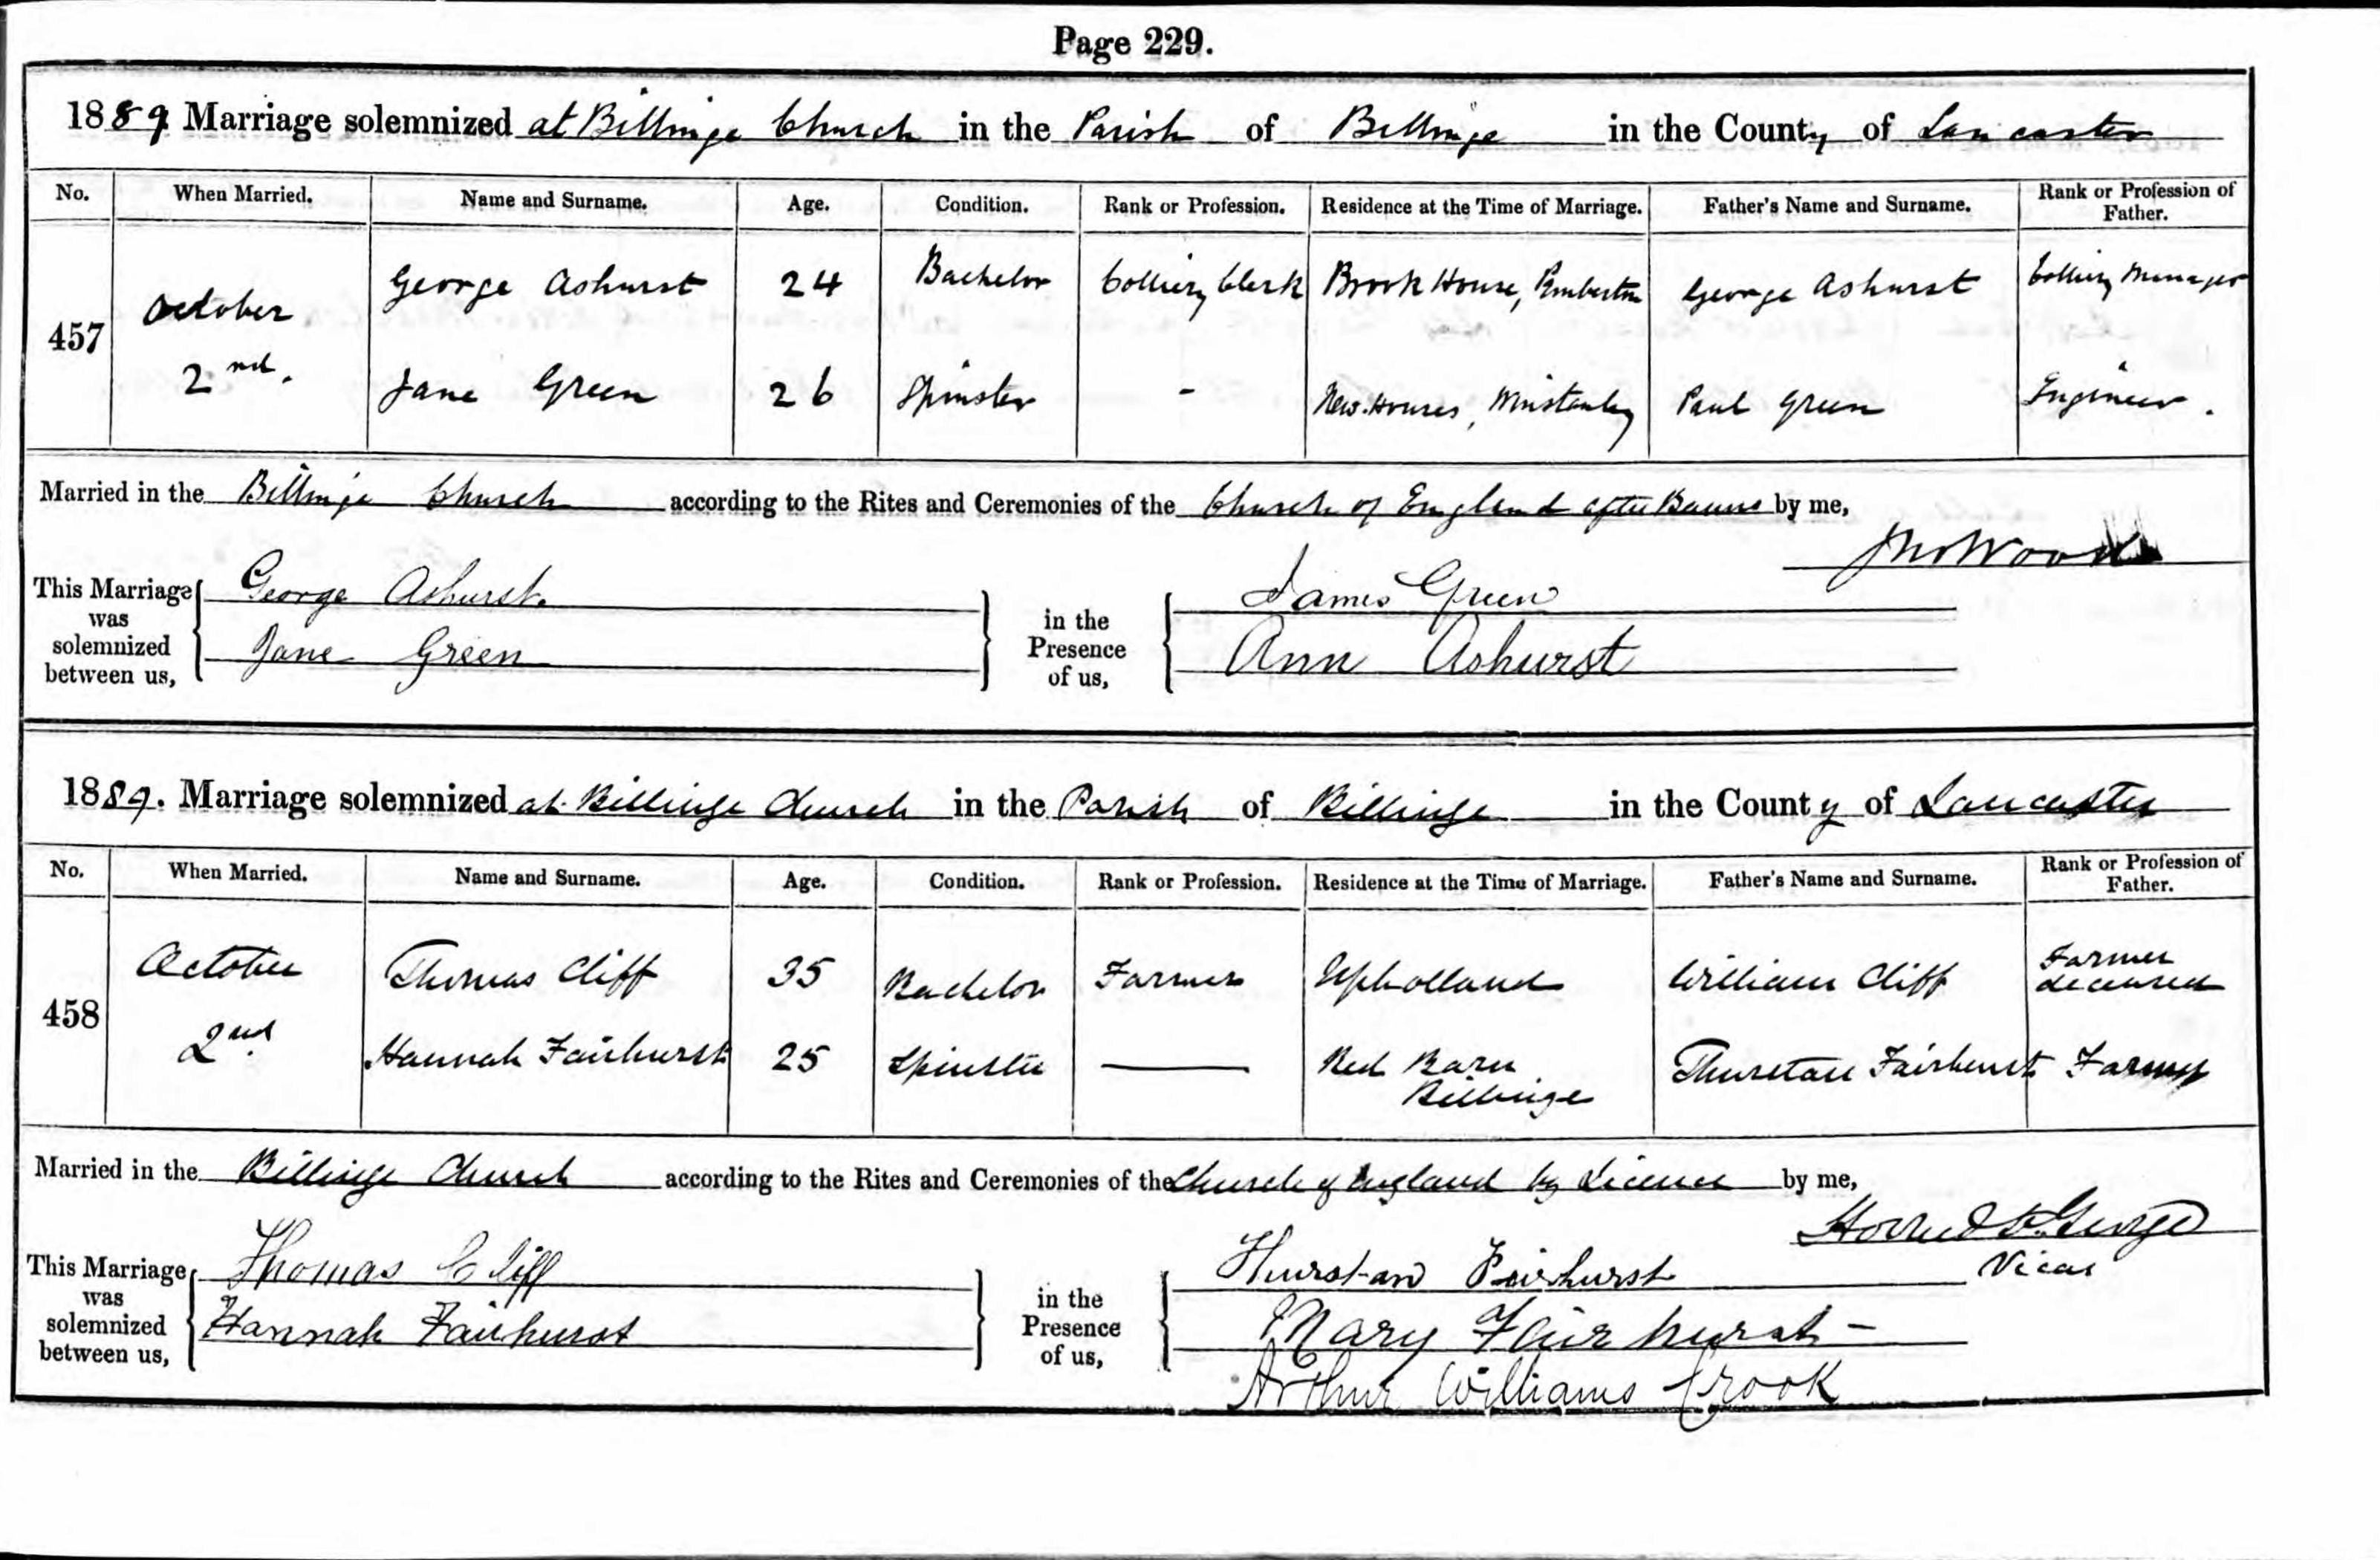 Page 229.
1889 Marriage solemnized at Billinge Church in the Parish of Billinge in the County of Lancaster
No. When Married. Name and Surname. Age. Condition. Rank or Profession. Residence at the Time of Marriage. Father's Name and Surname. Rank or Profession of Father.
457 October 2nd. George Ashurst 24 Bachelor Colliery Clerk Brook House, Pemberton George Ashurst Colliery Manager
Jane Green 26 Spinster - New Houses, Winstanley Paul Green Engineer.
Married in the Billinge Church according to the Rites and Ceremonies of the Church of England after Banns by me,
Wood
This Marriage was solemnized between us, George Ashurst. Jane Green in the Presence of us, James Green Ann Ashurst
1889. Marriage solemnized at Billinge Church in the Parish of Billinge in the County of Lancaster
No. When Married. Name and Surname. Age. Condition. Rank or Profession. Residence at the Time of Marriage. Father's Name and Surname. Rank or Profession of Father.
458 October 2nd Thomas Cliff 35 Bachelor Farmer Upholland William Cliff Farmer deceased
Hannah Fairhurst 25 Spinster — Red Barn Billinge Thurstan Fairhurst Farmer
Married in the Billinge Church according to the Rites and Ceremonies of the Church of England by Licence by me,
St. George
Vicar
This Marriage was solemnized between us, Thomas Cliff Hannah Fairhurst in the Presence of us, Thurstan Fairhurst Mary Fairhurst -
Arthur Williams Crook